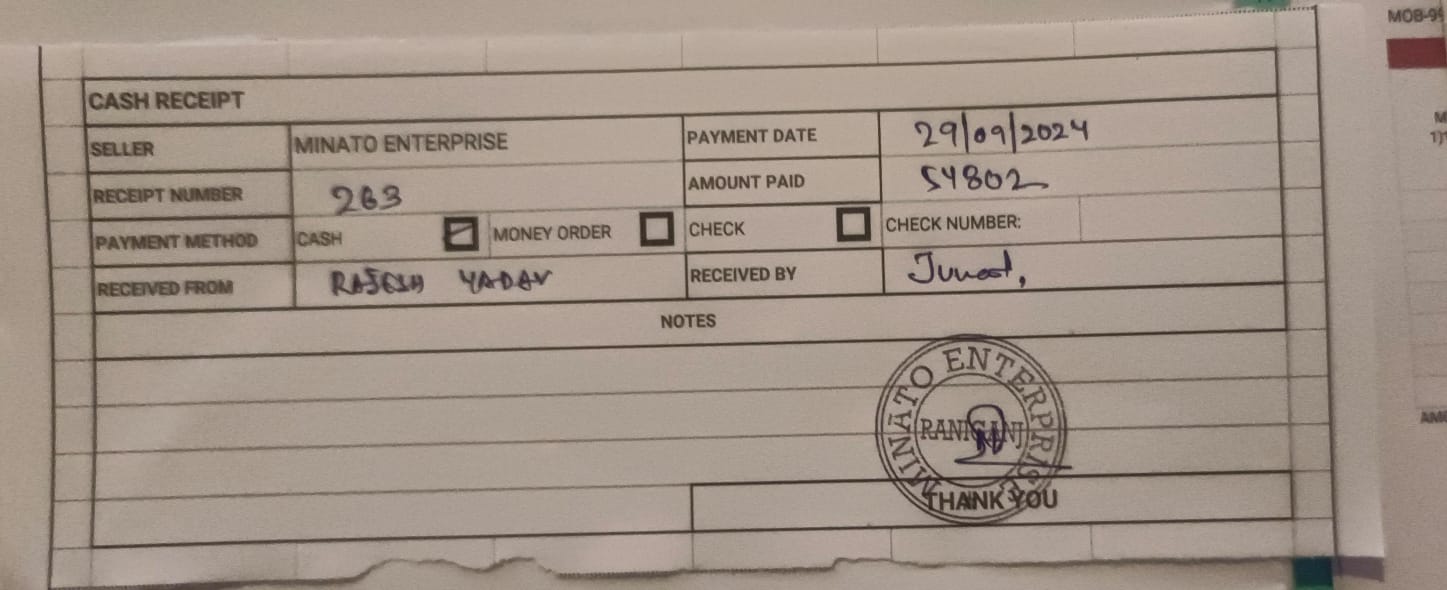 MOB-9
CASH RECEIPT
SELLER MINATO ENTERPRISE PAYMENT DATE 29/09/2024
RECEIPT NUMBER 263 AMOUNT PAID 54802
PAYMENT METHOD CASH MONEY ORDER CHECK CHECK NUMBER:
RECEIVED FROM RAJESH YADAV RECEIVED BY
NOTES
MINATO ENTERPRISE
RANIGANJ
THANK YOU